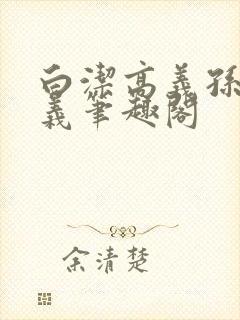 白潔高義孫
義筆趣閣
余清楚